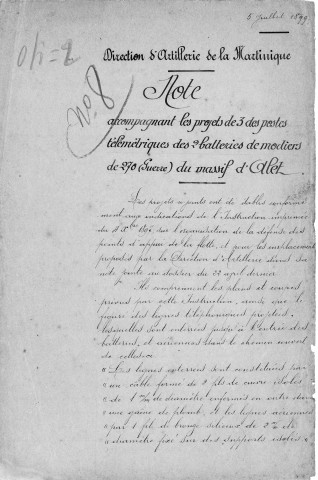 5 Juillet 1899
N° 8
Direction d'Artillerie de la Martinique
Note
accompagnant les projets de 3 des postes
télémétriques des 2 batteries de mortiers
de 270 (Guerre) du massif d'Alet
Les projets ci-joints ont été établis conformé-
ment aux indications de l'Instruction
sur l'organisation de la défense des
points d'appui de la flotte, et pour les emplacements
proposés par la Direction d'Artillerie dans sa
note jointe au dossier du 22 avril dernier.
Ils comprennent les plans et coupes
prévus par cette Instruction, ainsi que la
figure des lignes téléphoniques projetées,
lesquelles sont enterrées jusqu'à l'entrée des
batteries, et aériennes dans le chemin
"Les lignes enterrées sont constituées par
"un câble formé de 2 fils de cuivre isolés
"de 1 m/m de diamètre enfermés en outre dans
"une gaine de plomb. Et les lignes aériennes
"par 1 fil de bronze de 2 m/m de
"diamètre posé sur des supports isolés".